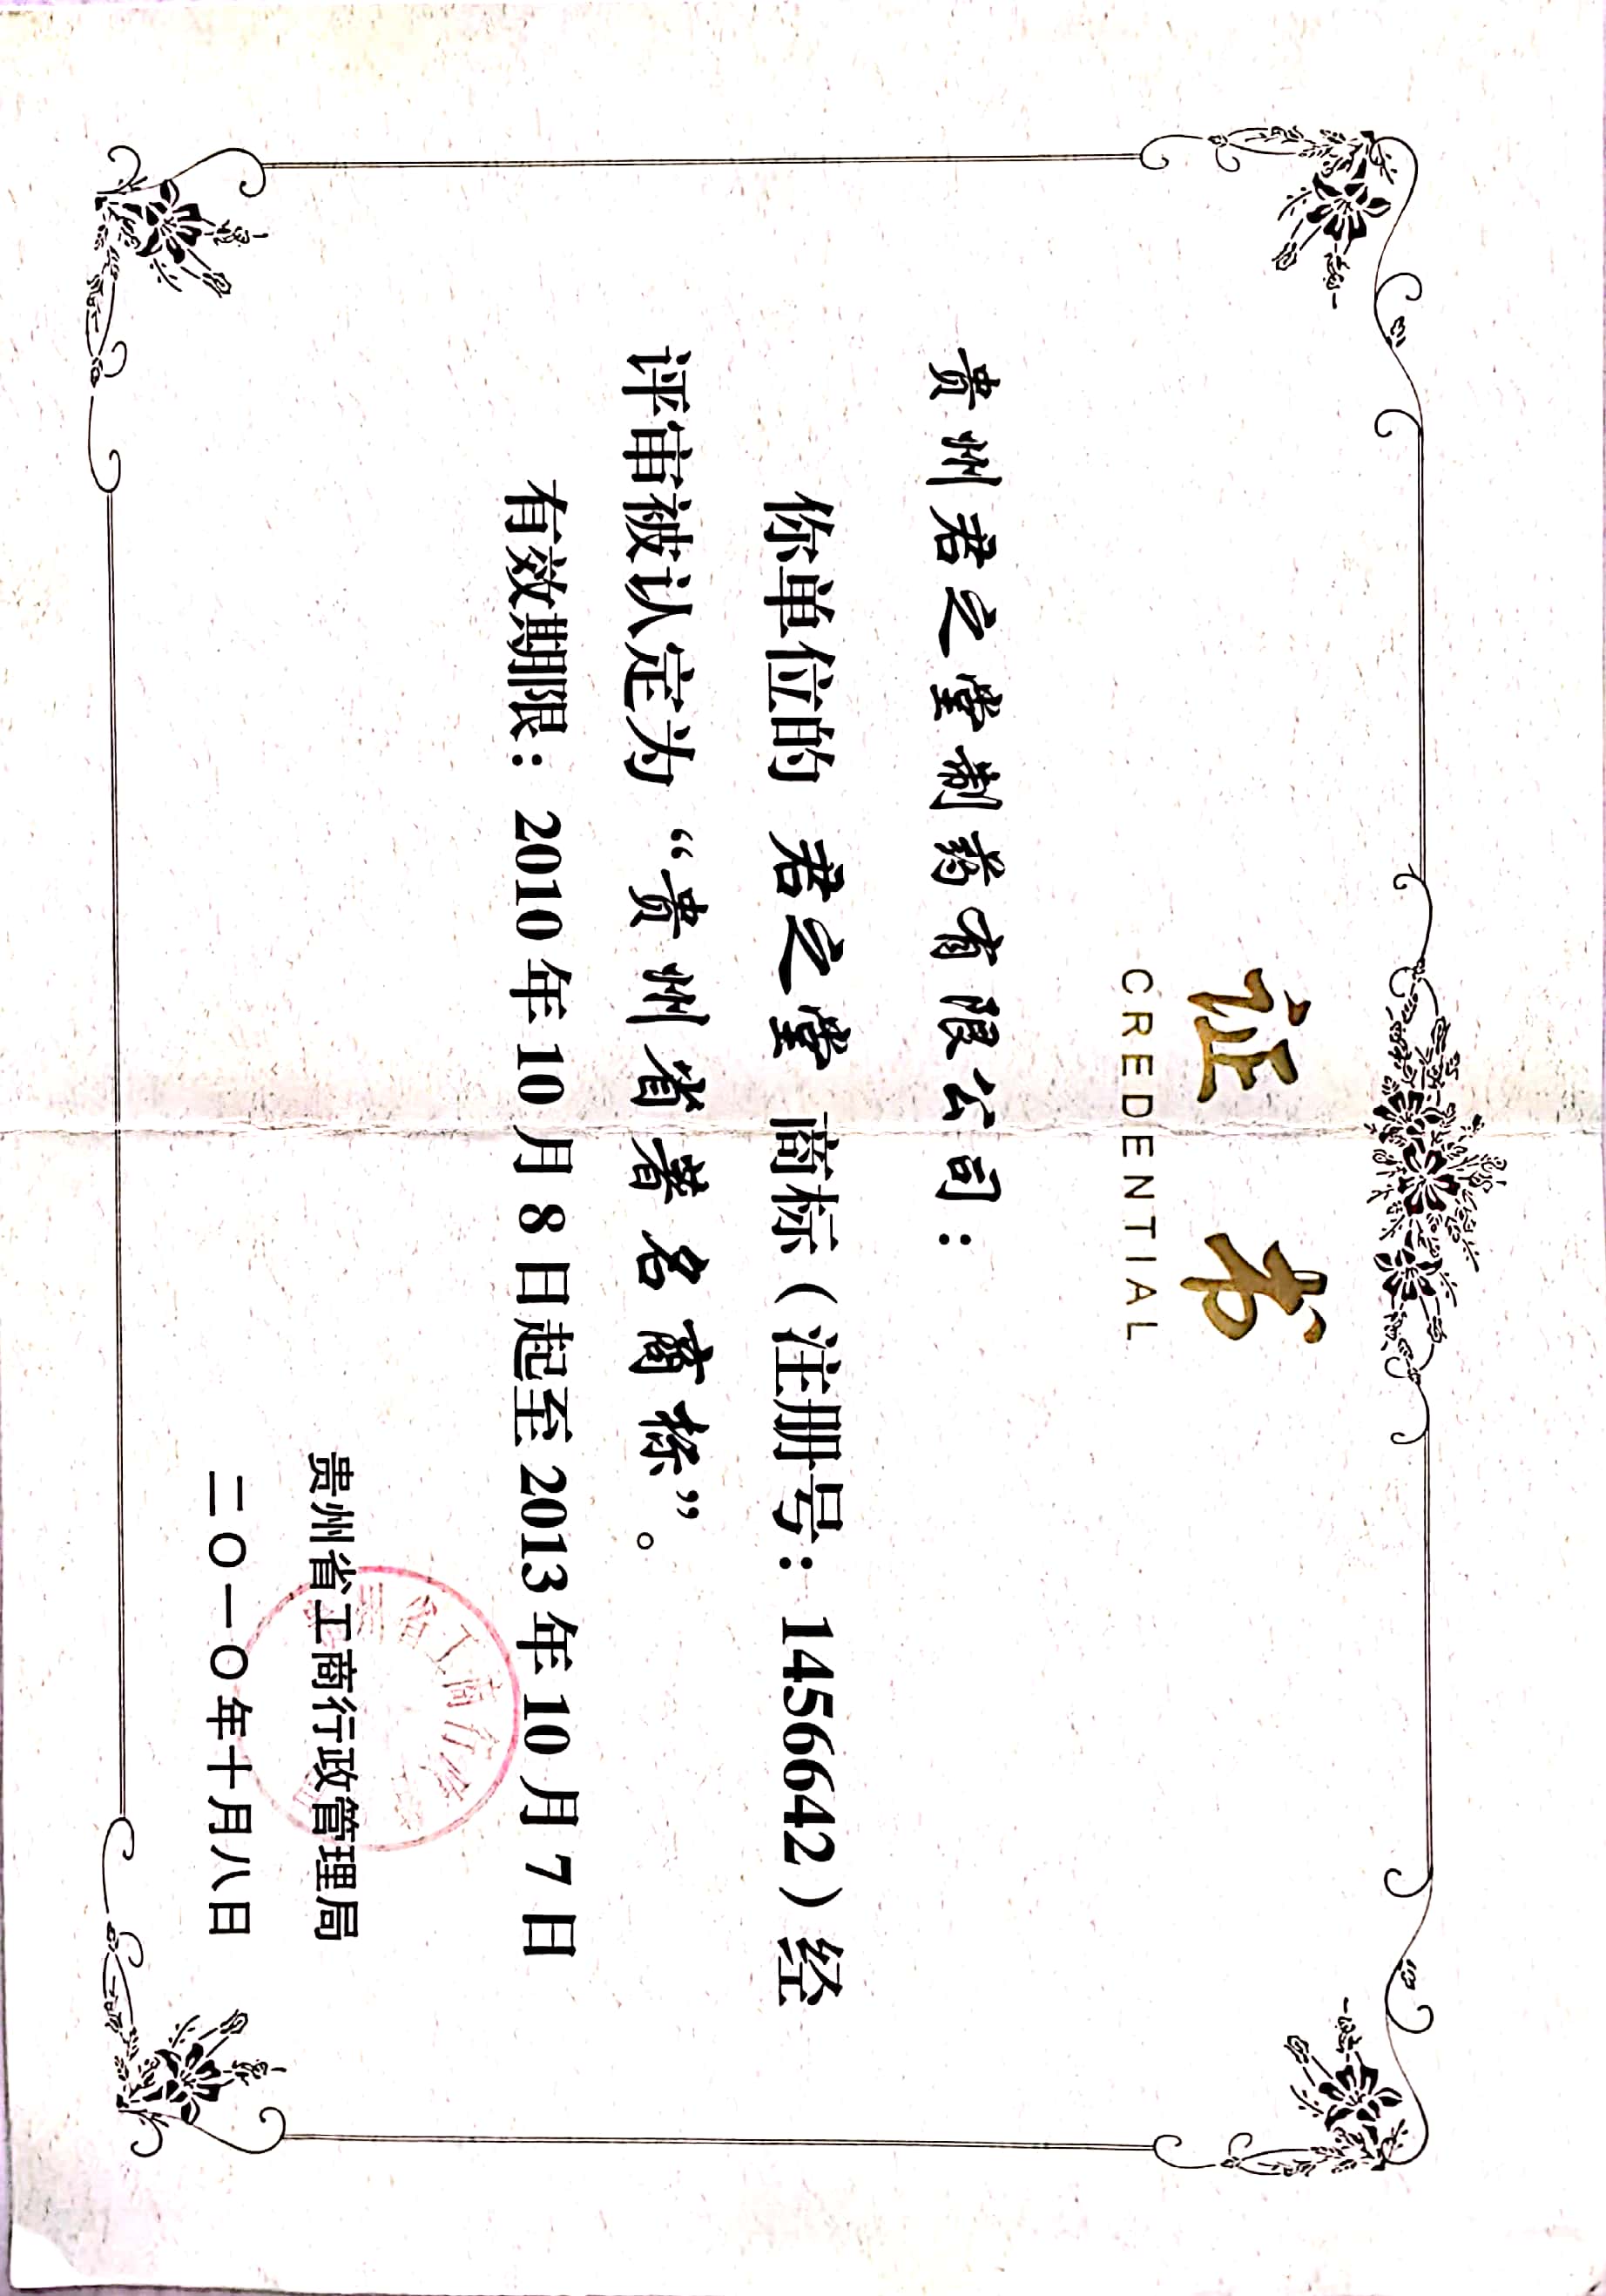 证书
CREDENTIAL
贵州君之堂制药有限公司：
你单位的 君之堂 商标（注册号：1456642）经
评审被认定为“贵州省著名商标”。
有效期限：2010年10月8日起至2013年10月7日
贵州省工商行政管理局
二〇一〇年十月八日
省工商行